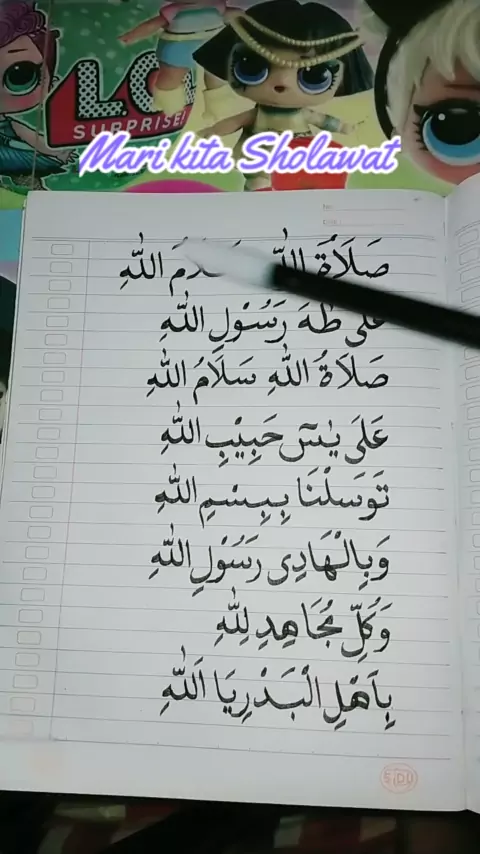 SURPRISE!
Mari kita Sholawat
صَلَاةُ اللّٰهِ سَلَامُ اللّٰهِ
عَلَى طٰهَ رَسُوْلِ اللّٰهِ
صَلَاةُ اللّٰهِ سَلَامُ اللّٰهِ
عَلَى يٰسٓ حَبِيْبِ اللّٰهِ
تَوَسَلْنَا بِبِسْمِ اللّٰهِ
وَبِالْهَادِى رَسُوْلِ اللّٰهِ
وَكُلِّ مُجَاهِدٍ لِلّٰهِ
بِاَهْلِ الْبَدْرِ يَا اَللّٰهِ
SIDU